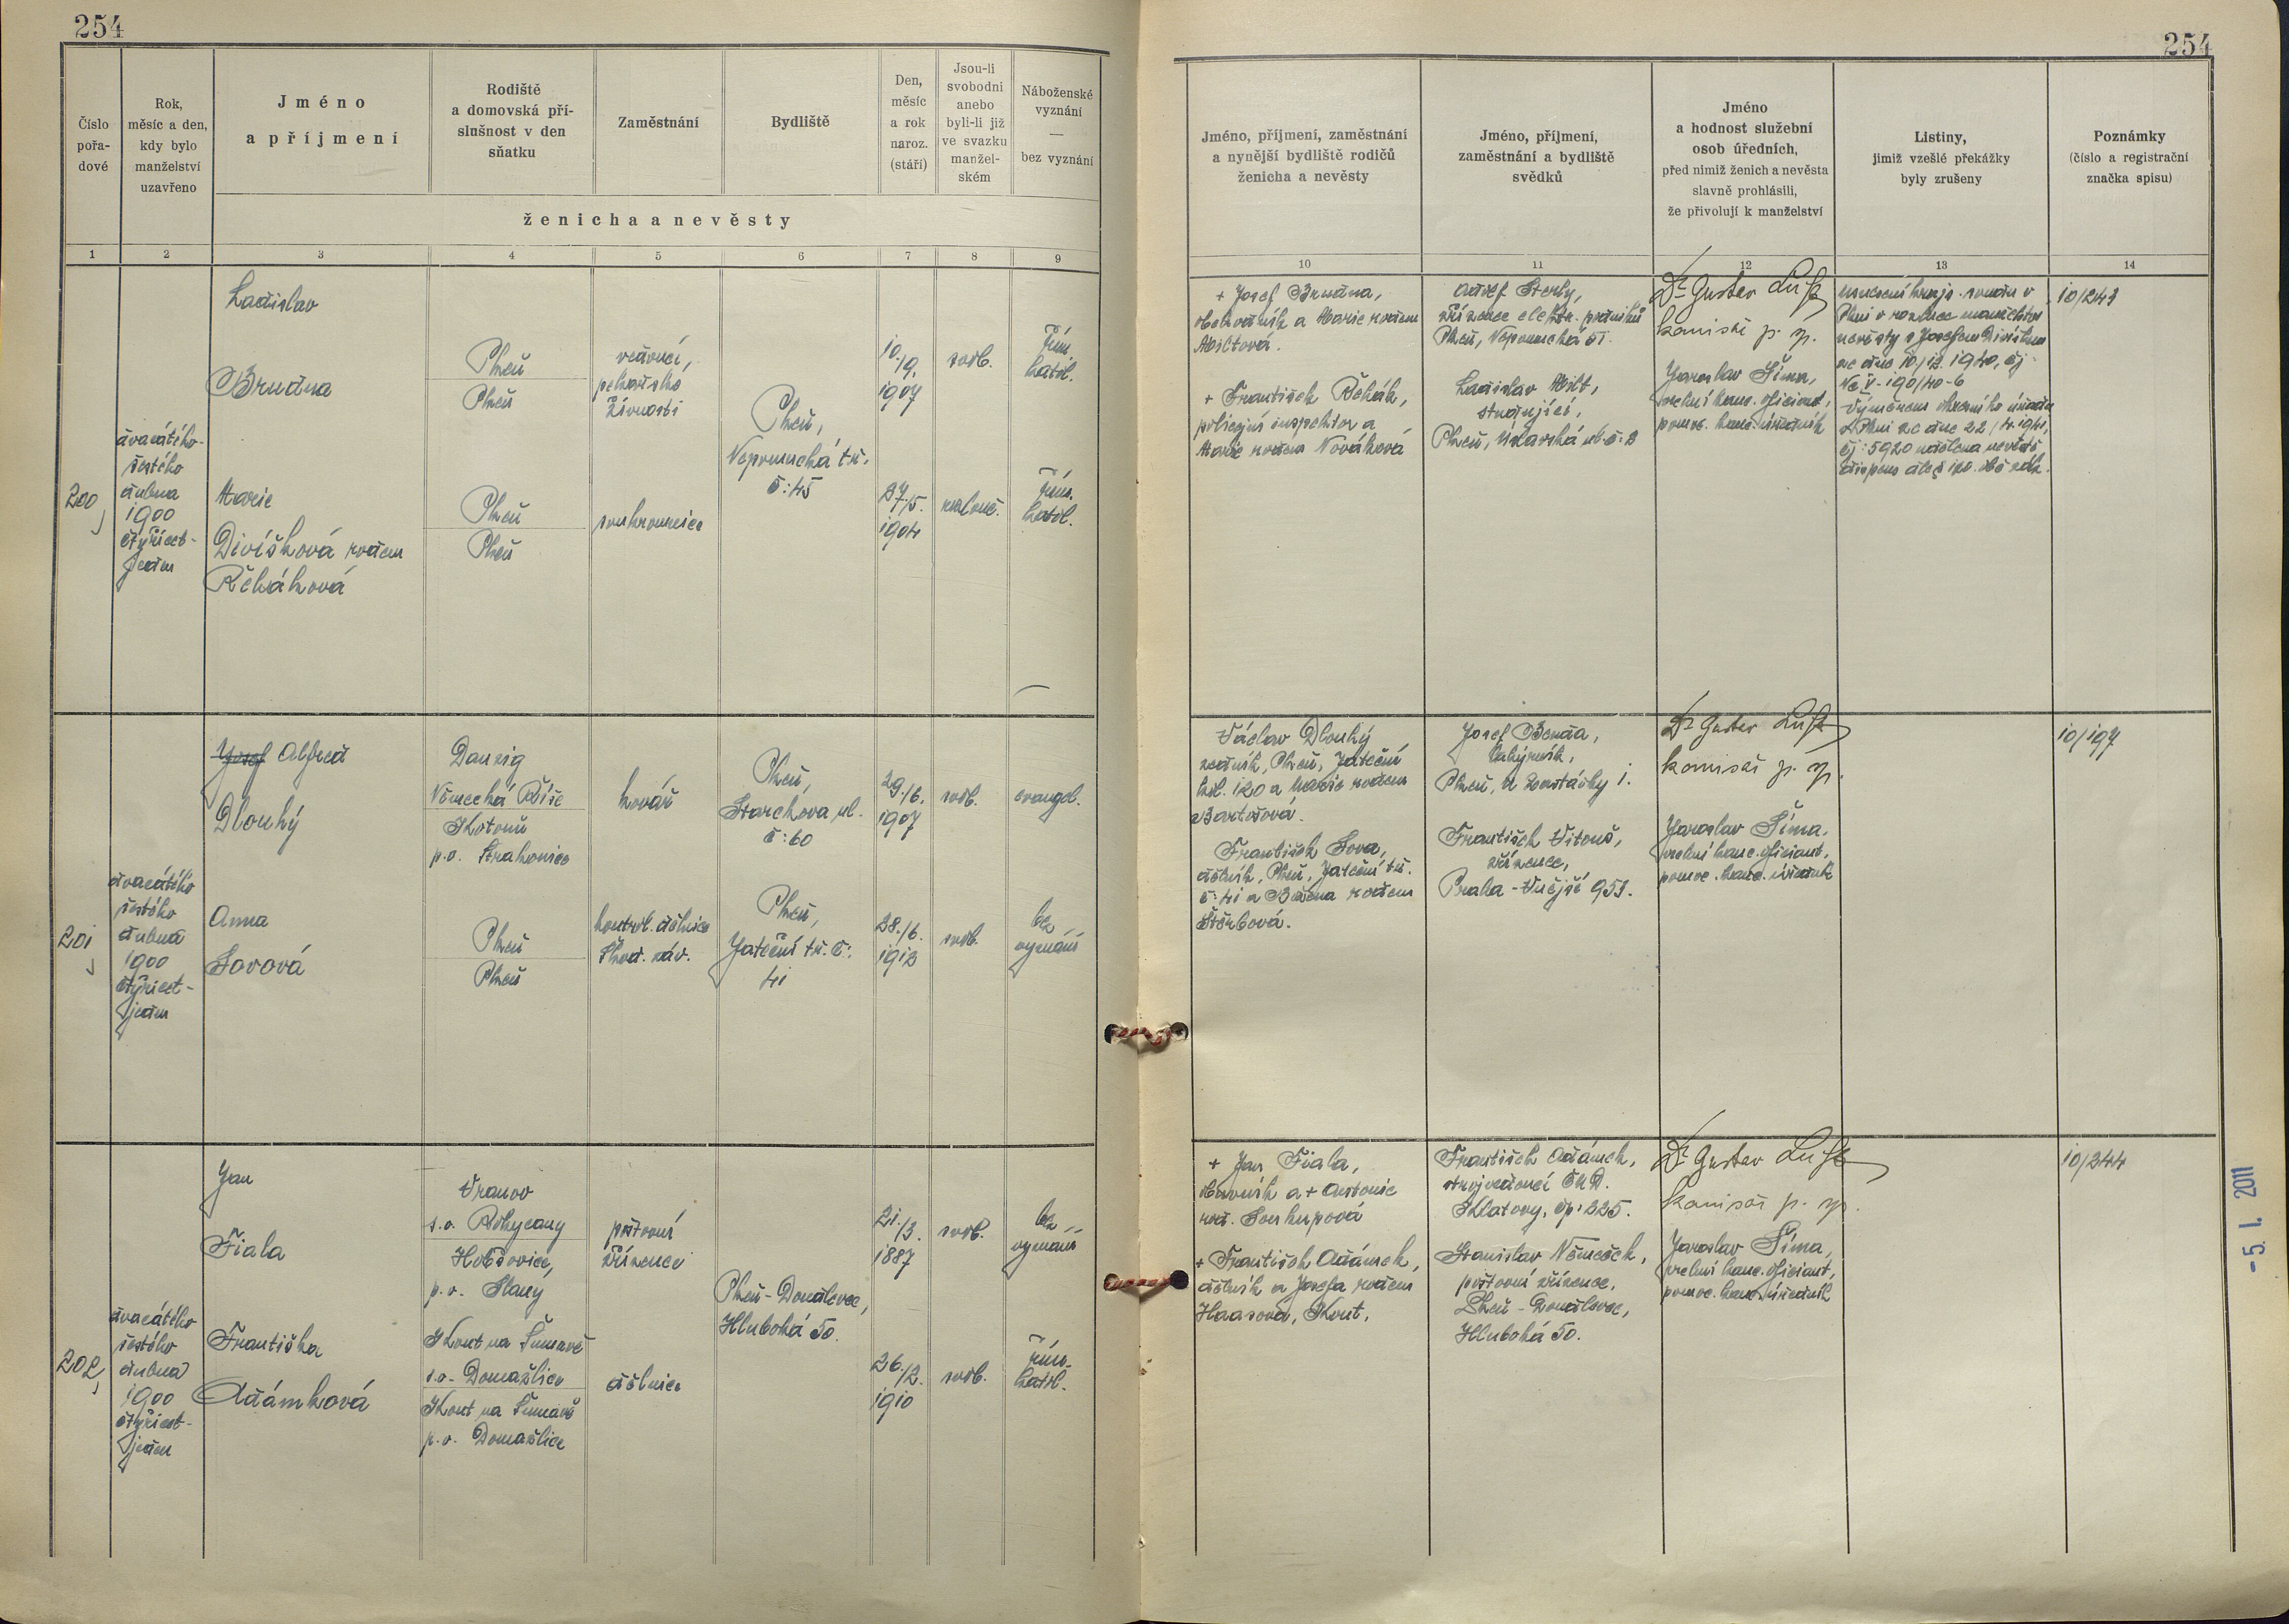 254
254
Číslo
pořa-
dové
Rok,
měsíc a den,
kdy bylo
manželství
uzavřeno
Jméno
a příjmení
Rodiště
a domovská pří-
slušnost v den
sňatku
Zaměstnání
Bydliště
Den,
měsíc
a rok
naroz.
(stáří)
Jsou-li
svobodni
anebo
byli-li již
ve svazku
manžel-
ském
Náboženské
vyznání
—
bez vyznání
ženicha a nevěsty
Jméno, příjmení, zaměstnání
a nynější bydliště rodičů
ženicha a nevěsty
Jméno, příjmení,
zaměstnání a bydliště
svědků
Jméno
a hodnost služební
osob úředních,
před nimiž ženich a nevěsta
slavně prohlásili,
že přivolují k manželství
Listiny,
jimiž vzešlé překážky
byly zrušeny
Poznámky
(číslo a registrační
značka spisu)
1 2 3 4 5 6 7 8 9
10 11 12 13 14
200
dvacátého-
šestého
dubna
1900
čtyřicet-
jedna
Ladislav
Brudna
Plzeň
Plzeň
vedoucí,
pekařské
živnosti
Plzeň,
Nepomucká tř.
č: 45
10./9.
1907
svob.
řím.
katol.
Marie
Divíšková rozen
Řeháková
Plzeň
Plzeň
soukromnice
27./5.
1904
rozlouč.
řím.
katol.
+ Josef Brudna,
obchodník a Marie rozen
Miltová.
+ František Řehák,
policejní inspektor a
Marie rozen Nováková
Adolf Sterly,
zřízenec elektr. podniků
Plzeň, Nepomucká 51.
Ladislav Milt,
studující,
Plzeň, Úslavská ul. č: 2
Dr Gustav Luft
komisař p. sp.
Jaroslav Šíma,
vrchní kanc. oficiant,
pomoc. kanc. úředník
Usnesení krajs. soudu v
Plzni o rozluce manželství
nevěsty s Josefem Divíškem
ze dne 10/12 1940, čj
Nc V-190/40-6
Výměrem okresního úřadu
v Plzni ze dne 22/4. 1941,
čj: 5920 udělena nevěstě
dispens dle § 120. obč. zák.
10/243
201
dvacátého
šestého
dubna
1900
čtyřicet-
jedna
Josef Alfred
Dlouhý
Danzig
Německá Říše
Kotouň
p.o. Strakonice
kovář
Plzeň,
Starckova ul.
č: 60
29./6.
1907
svob.
evangel.
Anna
Sovová
Plzeň
Plzeň
kontrol. dělnice
Škod. záv.
Plzeň,
Jateční tř. č:
41
28./6.
1912
svob.
bez
vyznání
Václav Dlouhý
zedník, Plzeň, Jateční
120 a Marie rozen
Bartošová.
František Sova,
dělník, Plzeň, Jateční tř.
č: 41 a Božena rozen
Štěrbová.
Josef Benda,
Plzeň, U Zastávky 1.
František Vitouš,
zřízenec,
Praha - 953.
Dr Gustav Luft
komisař p. sp.
Jaroslav Šíma,
vrchní kanc. oficiant,
pomoc. kanc. úředník
10/197
202
dvacátého
šestého
dubna
1900
čtyřicet-
jedna
Jan
Fiala
Vranov
s.o. Rokycany
Hobšovice,
p.o. Slaný
poštovní
zřízenec
Plzeň-Doudlevce,
Hluboká 50.
21./3.
1887
svob.
bez
vyznání
Františka
Adámková
Kout na Šumavě
s.o. Domažlice
Kout na Šumavě
p.o. Domažlice
dělnice
26./2.
1910
svob.
řím.
katol.
+ Jan Fiala,
obuvník a + Antonie
roz. Soukupová
+ František Adámek,
dělník a Josefa rozen
Haasová, Kout.
František Adámek,
strojvedoucí ČMD.
Klatovy, čp: 225.
Stanislav Němeček,
poštovní zřízenec,
Plzeň - Doudlevce,
Hluboká 50.
Dr Gustav Luft
komisař p. sp.
Jaroslav Šíma,
vrchní kanc. oficiant,
pomoc. kanc. úředník
10/244
- 5. I. 2011